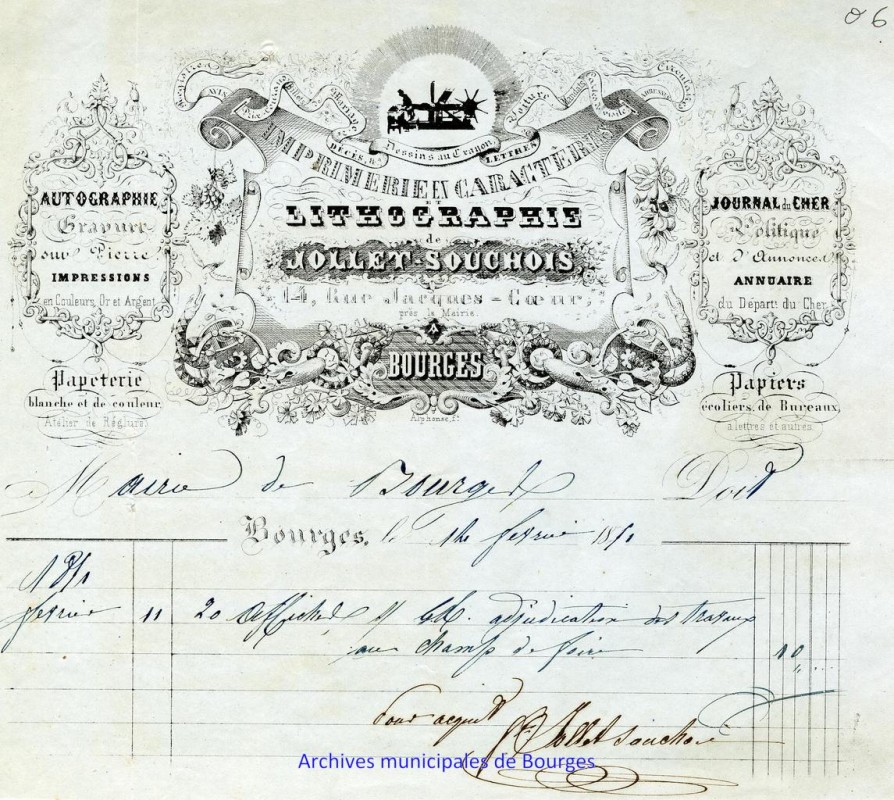 06
Factures
AVIS
Mariage
Voiture
Circulaires
ADRESSES
DÉCÈS, &.
Dessins au Crayon
LETTRES
IMPRIMERIE EN CARACTÈRES
ET
LITHOGRAPHIE
de
JOLLET-SOUCHOIS,
14, Rue Jacques-Cœur,
près la Mairie.
A
BOURGES
Alphonse, F.
AUTOGRAPHIE
Gravure
sur Pierre
IMPRESSIONS
en Couleurs, Or et Argent
Papeterie
blanche et de couleur,
(Atelier de Réglure)
JOURNAL du CHER
Politique
et d'Annonces
ANNUAIRE
du Départ. du Cher.
Papiers
écoliers, de Bureaux,
à lettres et autres.
Mairie de Bourges Doit
Bourges, le 12 fevrier 1851
1851
fevrier 11 20 affiches adjudication des travaux
au champ de foire 10 "
Pour acquit
Jollet Souchois
Archives municipales de Bourges